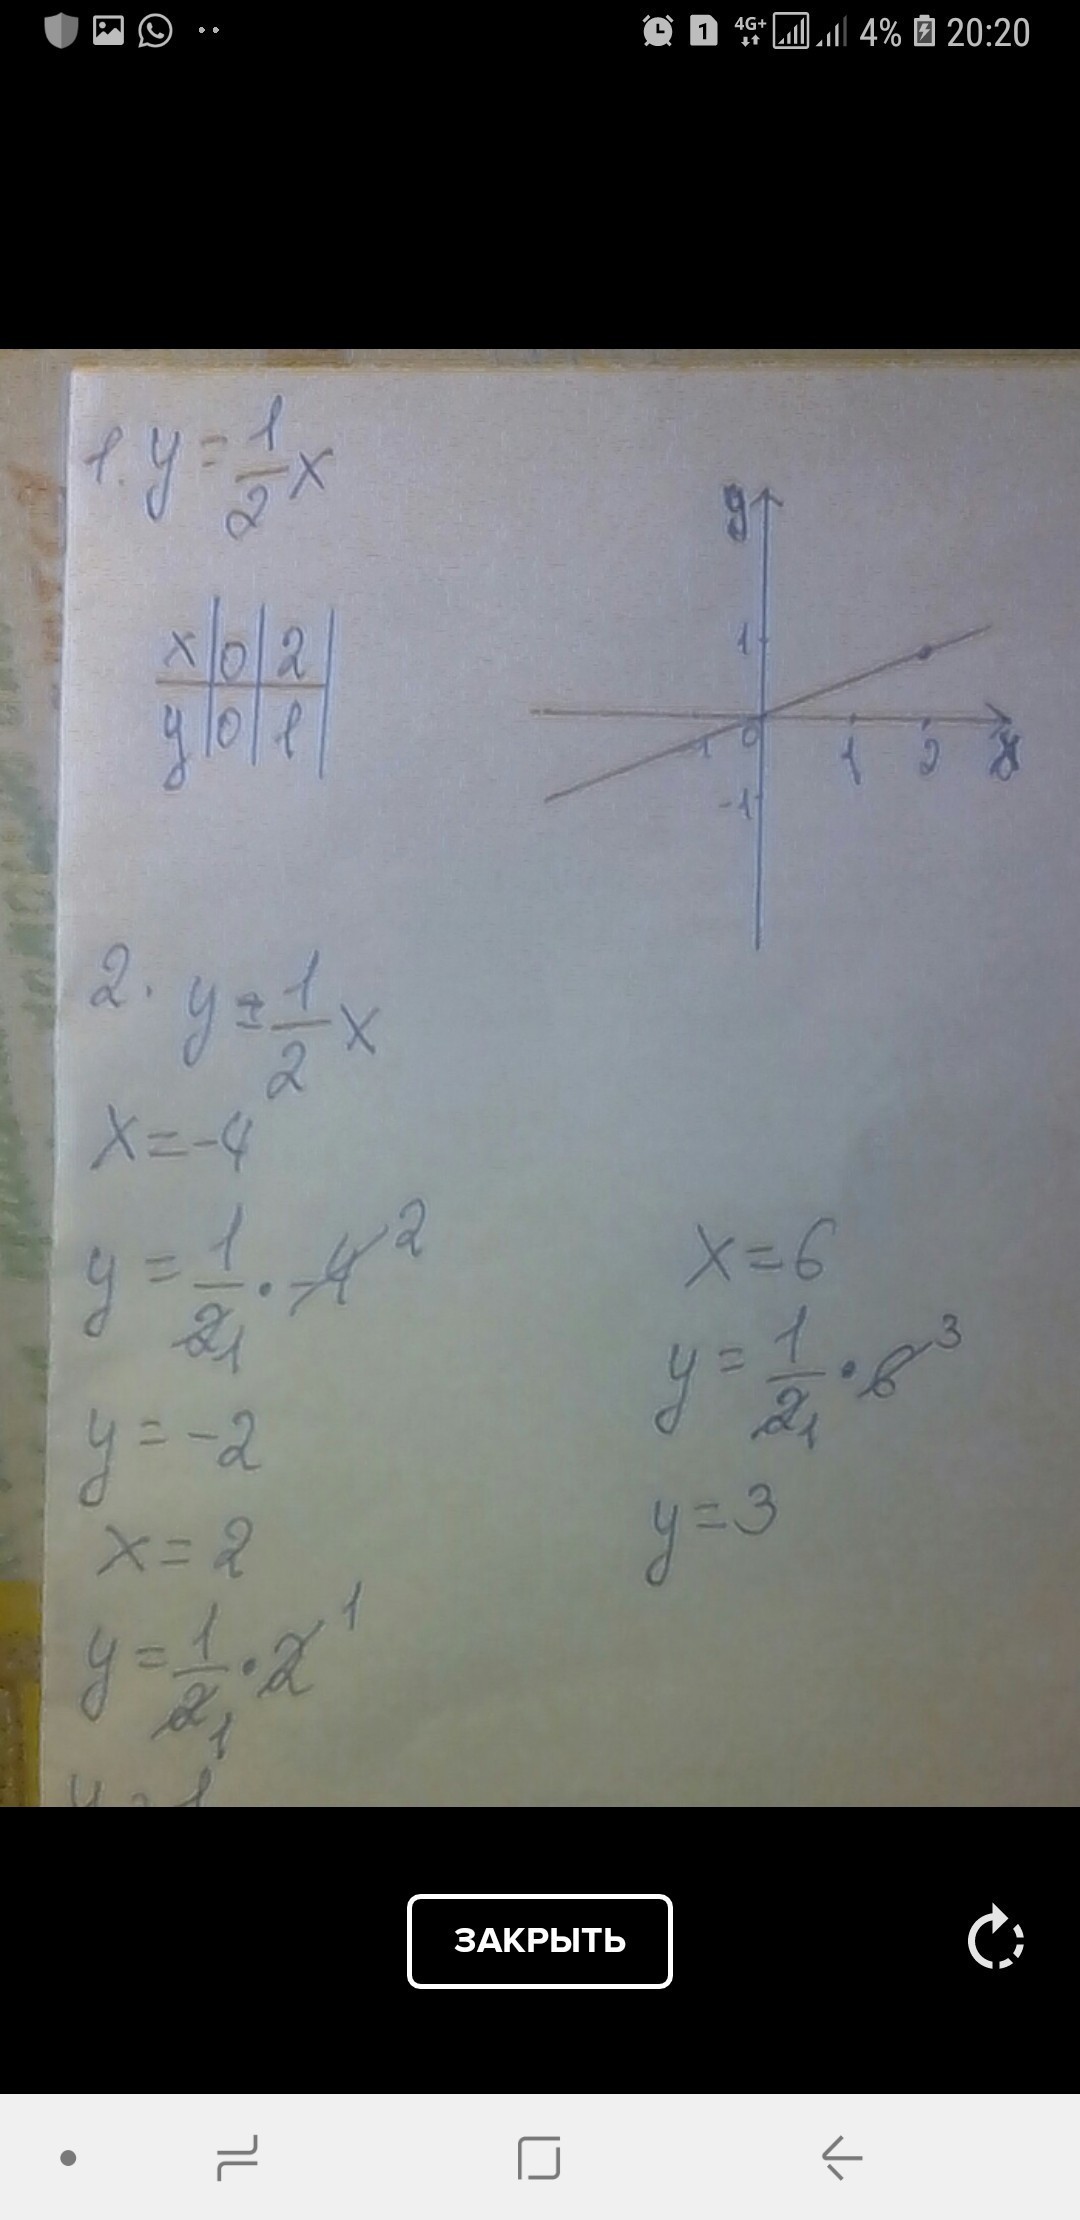 4G+ 4% 20:20
1. y = 1/2 x
x | 0 | 2 |
y | 0 | 1 |
y
1
-1 0 1 2 x
-1
2. y = 1/2 x
x = -4
y = 1/2 1 · -4 2
y = -2
x = 2
y = 1/2 1 · 2 1
y = 1
x = 6
y = 1/2 1 · 6 3
y = 3
ЗАКРЫТЬ